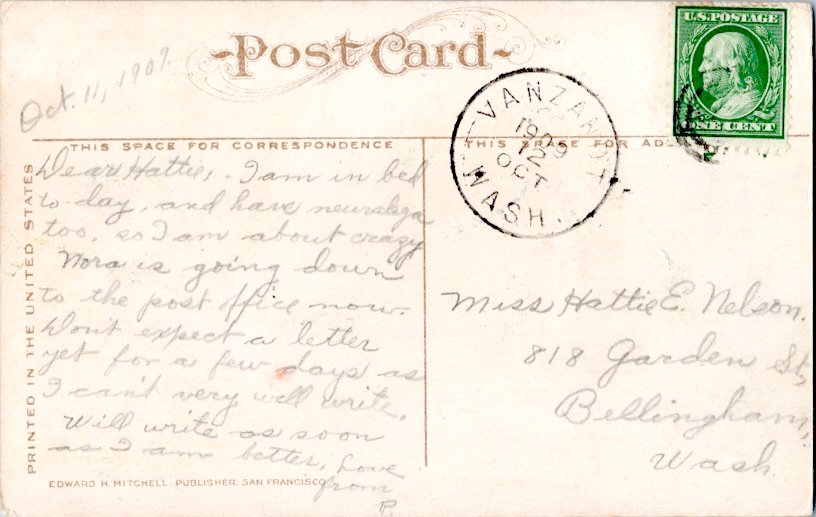 Oct. 11, 1909.
Post Card
U.S. POSTAGE
ONE CENT
VANZANDT
1909
12
OCT
WASH.
THIS SPACE FOR CORRESPONDENCE
THIS SPACE FOR AD
PRINTED IN THE UNITED STATES
Dear Hattie, - I am in bed
to-day, and have neuralega
too, so I am about crazy
Nora is going down
to the post office now.
Don't expect a letter
yet for a few days as
I can't very well write.
Will write as soon
as I am better, Love
from
P.
Miss Hattie E. Nelson.
818 Garden St,
Bellingham,
Wash.
EDWARD H. MITCHELL, PUBLISHER, SAN FRANCISCO